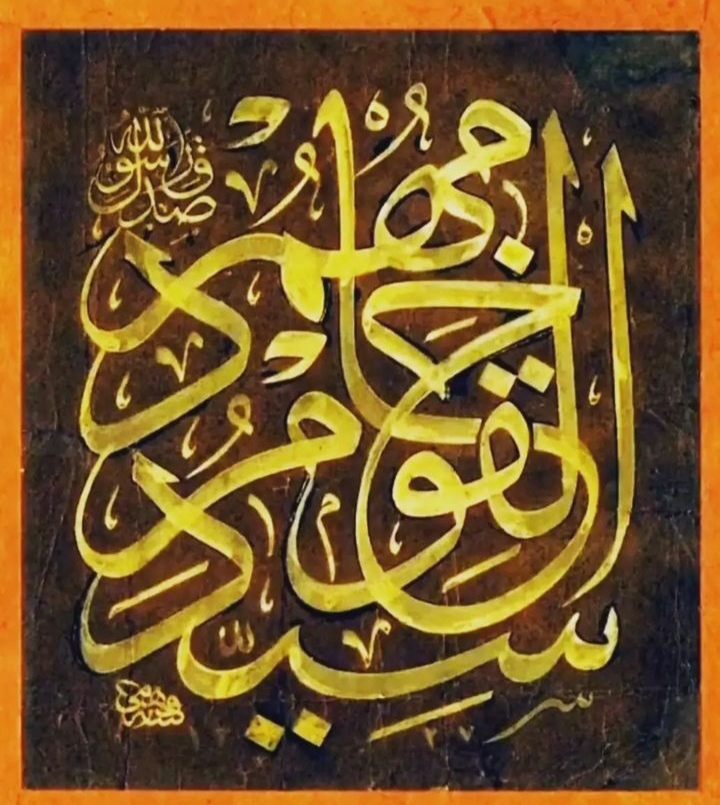 سَيِّدُ الْقَوْمِ خَادِمُهُمْ
صدق رسول الله